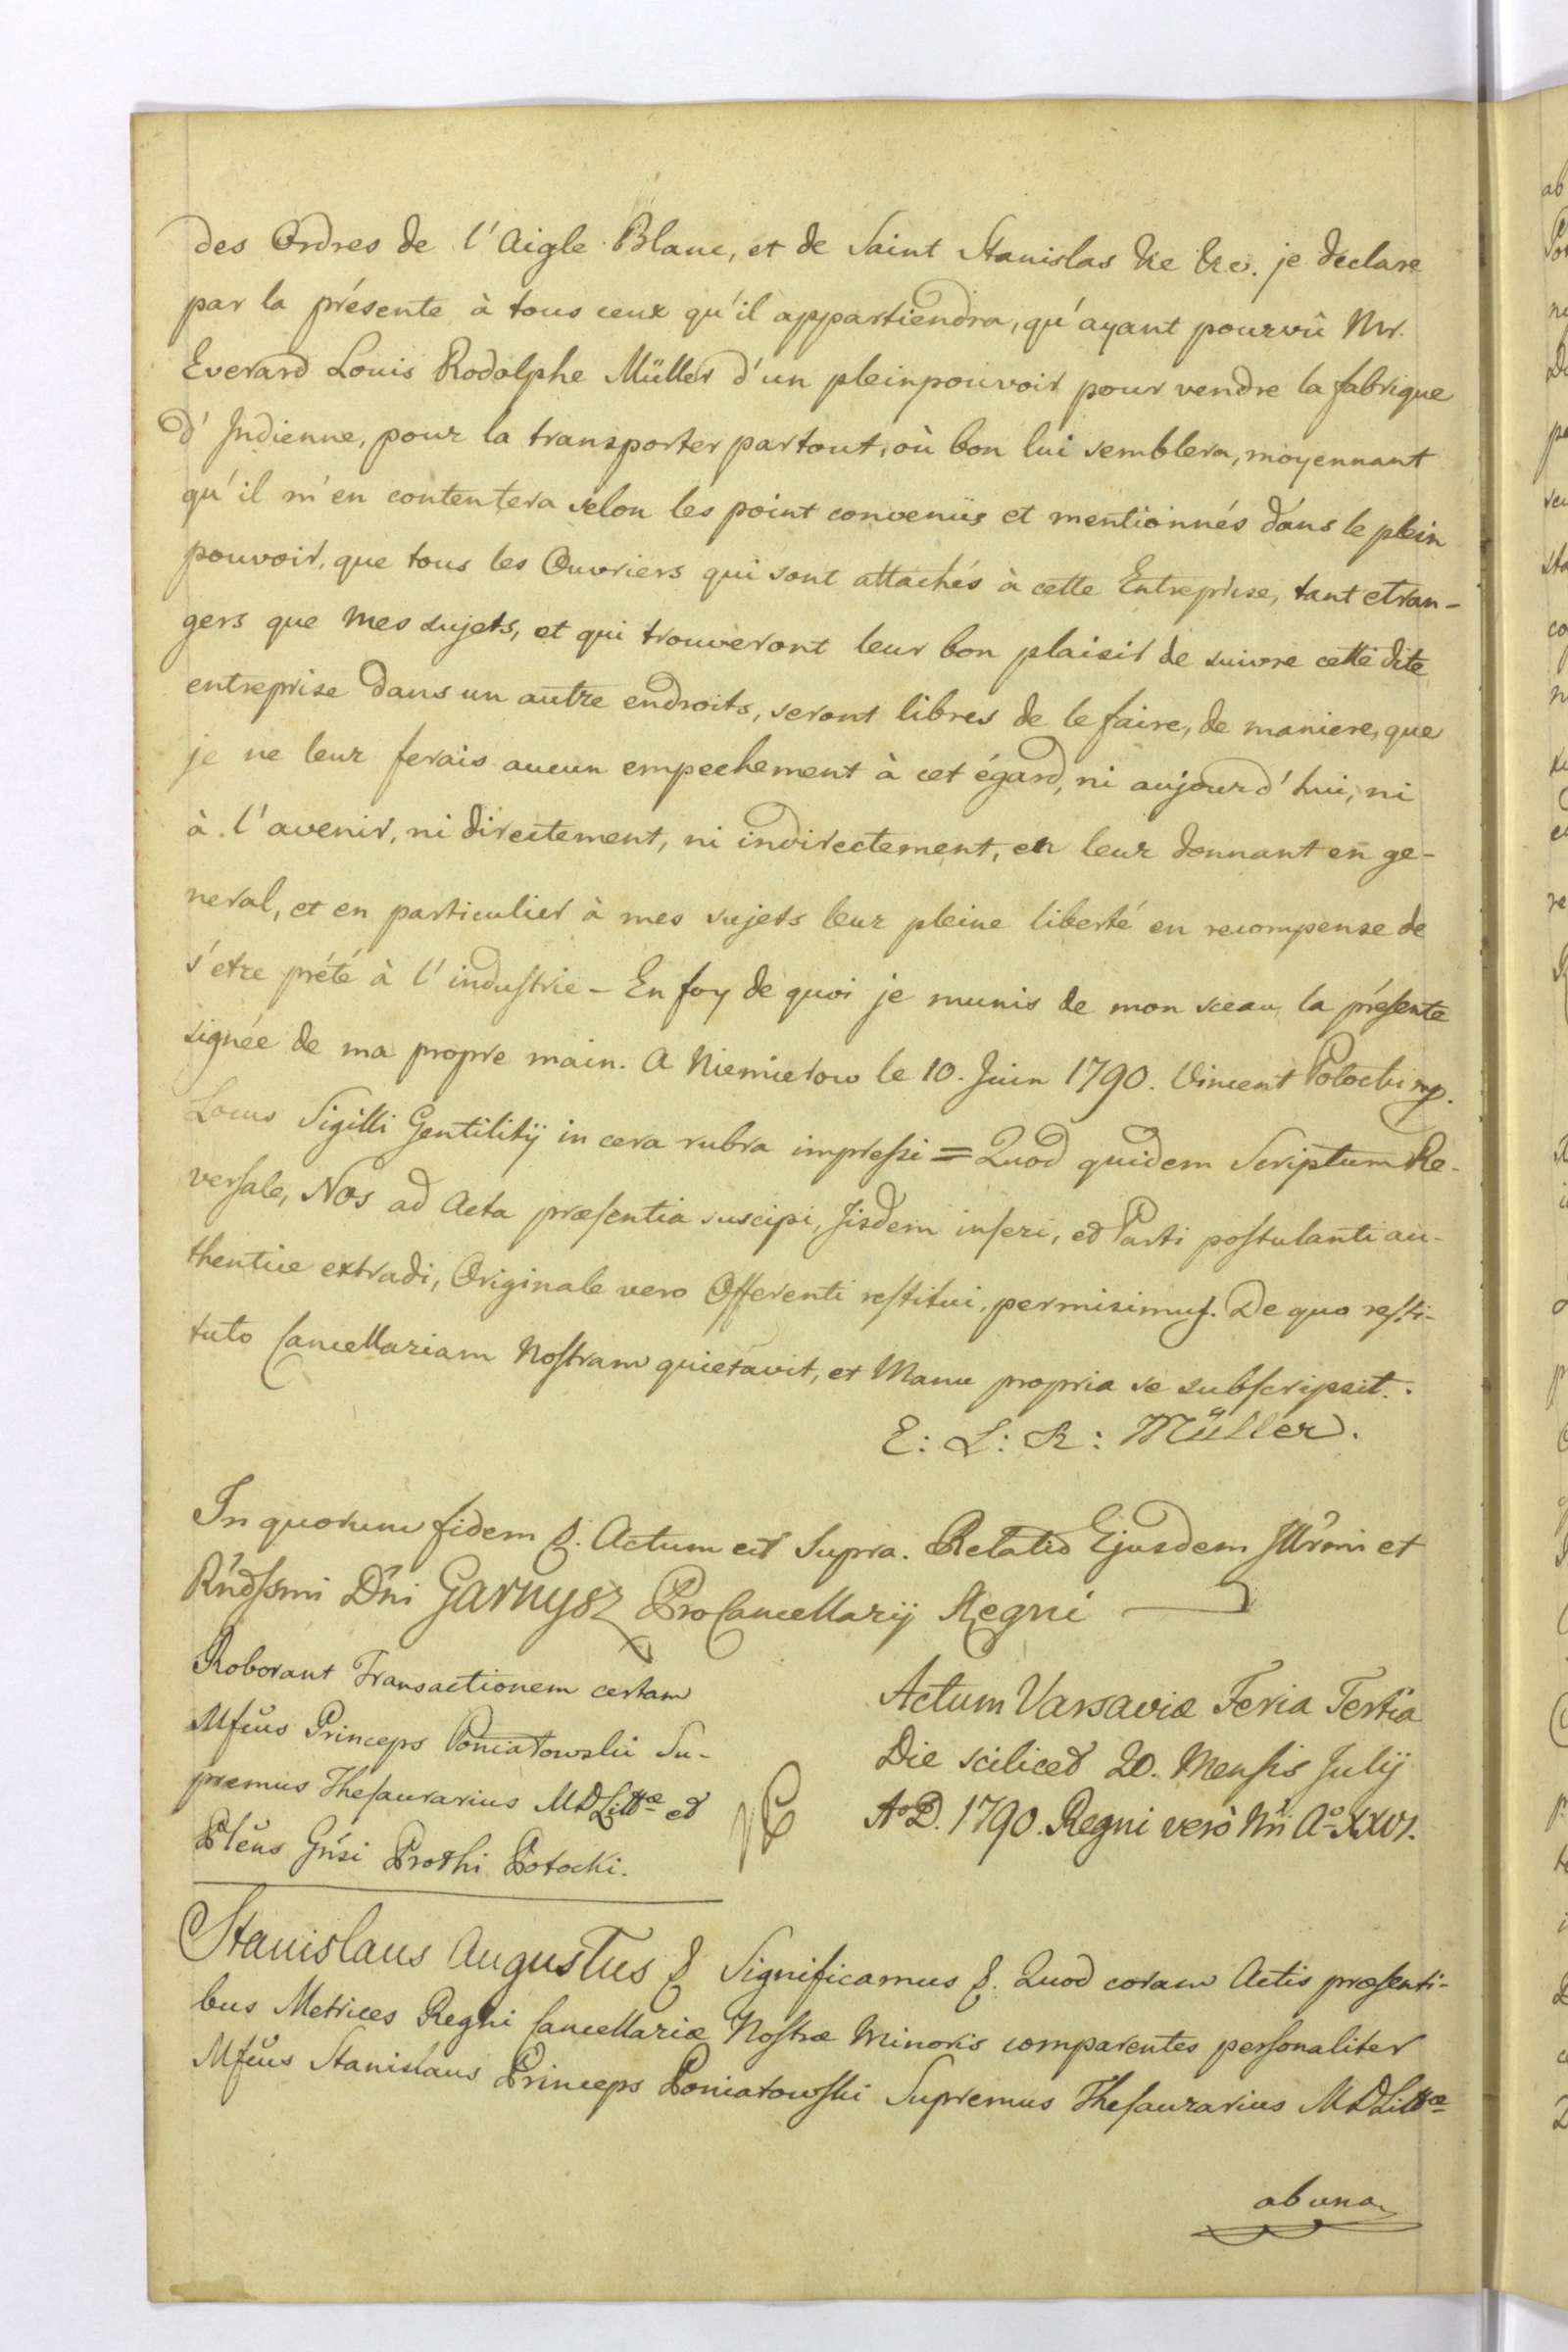 des Ordres de l'Aigle Blanc, et de Saint Stanislas &c &c. je declare
par la présente à tous ceux qu'il appartiendra, qu'ayant pourvû Mr.
Everard Louis Rodolphe Müller d'un pleinpouvoir pour vendre la fabrique
d'Indienne, pour la transporter partout, où bon lui semblera, moyennant
qu'il m'en contentera selon les point convenüs et mentionnés dans le plein
pouvoir, que tous les Ouvriers qui sont attachés à cette Entreprise, tant etran-
gers que mes sujets, et qui trouveront leur bon plaisir de suivre cette dite
entreprise dans un autre endroits, seront libres de le faire, de maniere, que
je ne leur ferais aucun empechement à cet égard, ni aujourd'hui, ni
à l'avenir, ni directement, ni indirectement, en leur donnant en ge-
neral, et en particulier à mes sujets leur pleine liberté en recompense de
s'etre prété à l'industrie - En foy de quoi je munis de mon sceau la présente
signée de ma propre main. A Niemirow le 10. Juin 1790. Vincent Potocki mp.
Locus Sigilli Gentilitij in cera rubra impressi = Quod quidem Scriptum Re-
versale, Nos ad Acta præsentia suscipi, Jisdem inseri, et Parti postulanti au-
thentice extradi, Originale vero Offerenti restitui, permisimus. De quo resti-
tuto Cancellariam Nostram quietavit, et Manu propria se subscripsit.
E: L: R: Müller.
In quorum fidem &. Actum ut Supra. Relatio Ejusdem Illr̃mi et
Rṅdssmi Dṅi Garnysz ProCancellarij Regni
Roborant Transactionem certam
Mfcus Princeps Poniatowski Su-
premus Thesaurarius MDLittæ et
Pleñs Gñsi Prothi Potocki.
Actum Varsaviæ Feria Tertia
Die scilicet 20. Mensis Julij
AoD. 1790. Regni verò Nri Ao XXVI.
Stanislaus Augustus & Significamus &. Quod coram Actis præsenti-
bus Metrices Regni Cancellariæ Nostræ Minoris comparentes personaliter
Mfcus Stanislaus Princeps Poniatowski Supremus Thesaurarius MDLittæ
ab una